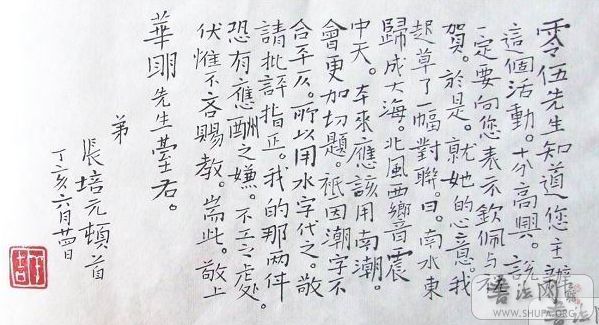 零伍先生知道您主辦
這個活動。十分高興。說
一定要向您表示欽佩与
賀。於是。就她的心意。我
起草了一幅對聯。曰。南水東
歸成大海。北風西嚮音震
中天。本來應該用南潮。
會更加切題。祇因潮字不
合平仄。所以用水字代之。敬
請批評指正。我的那两件
恐有應酬之嫌。不工之處。
伏惟不吝賜教。耑此。敬上
華明先生臺右。
弟
張培元頓首
丁亥六月廿四日
書法网
WWW.SHUFA.ORG